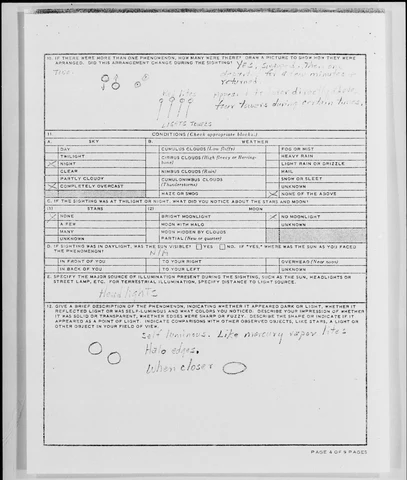 10. IF THERE WERE MORE THAN ONE PHENOMENON, HOW MANY WERE THERE? DRAW A PICTURE TO SHOW HOW THEY WERE
ARRANGED. DID THIS ARRANGEMENT CHANGE DURING THE SIGHTING?
four towers during certain times.
LIGHTS TOWERS
11. CONDITIONS (Check appropriate blocks.)
A. SKY B. WEATHER
DAY CUMULUS CLOUDS (Low fluffy) FOG OR MIST
TWILIGHT CIRRUS CLOUDS (High fleecy or Herringbone) HEAVY RAIN
X NIGHT LIGHT RAIN OR DRIZZLE
CLEAR NIMBUS CLOUDS (Rain) HAIL
PARTLY CLOUDY CUMULONIMBUS CLOUDS (Thunderstorms) SNOW OR SLEET
X COMPLETELY OVERCAST UNKNOWN
HAZE OR SMOG X NONE OF THE ABOVE
C. IF THE SIGHTING WAS AT TWILIGHT OR NIGHT, WHAT DID YOU NOTICE ABOUT THE STARS AND MOON?
(1) STARS (2) MOON
X NONE BRIGHT MOONLIGHT X NO MOONLIGHT
A FEW MOON WITH HALO UNKNOWN
MANY MOON HIDDEN BY CLOUDS
UNKNOWN PARTIAL (New or quarter)
D. IF SIGHTING WAS IN DAYLIGHT, WAS THE SUN VISIBLE? YES NO. IF "YES," WHERE WAS THE SUN AS YOU FACED
THE PHENOMENON? N/A
IN FRONT OF YOU TO YOUR RIGHT OVERHEAD (Near noon)
IN BACK OF YOU TO YOUR LEFT UNKNOWN
E. SPECIFY THE MAJOR SOURCE OF ILLUMINATION PRESENT DURING THE SIGHTING, SUCH AS THE SUN, HEADLIGHTS OR
STREET LAMP, ETC. FOR TERRESTRIAL ILLUMINATION, SPECIFY DISTANCE TO LIGHT SOURCE.
Headlights
12. GIVE A BRIEF DESCRIPTION OF THE PHENOMENON, INDICATING WHETHER IT APPEARED DARK OR LIGHT, WHETHER IT
REFLECTED LIGHT OR WAS SELF-LUMINOUS AND WHAT COLORS YOU NOTICED. DESCRIBE YOUR IMPRESSION OF WHETHER
IT WAS SOLID OR TRANSPARENT, WHETHER EDGES WERE SHARP OR FUZZY. DESCRIBE THE SHAPE OR INDICATE IF IT
APPEARED AS A POINT OF LIGHT. INDICATE COMPARISONS WITH OTHER OBSERVED OBJECTS, LIKE STARS, A LIGHT OR
OTHER OBJECT IN YOUR FIELD OF VIEW.
Self luminous. Like mercury vapor lites
Halo edges.
When closer
PAGE 4 OF 9 PAGES